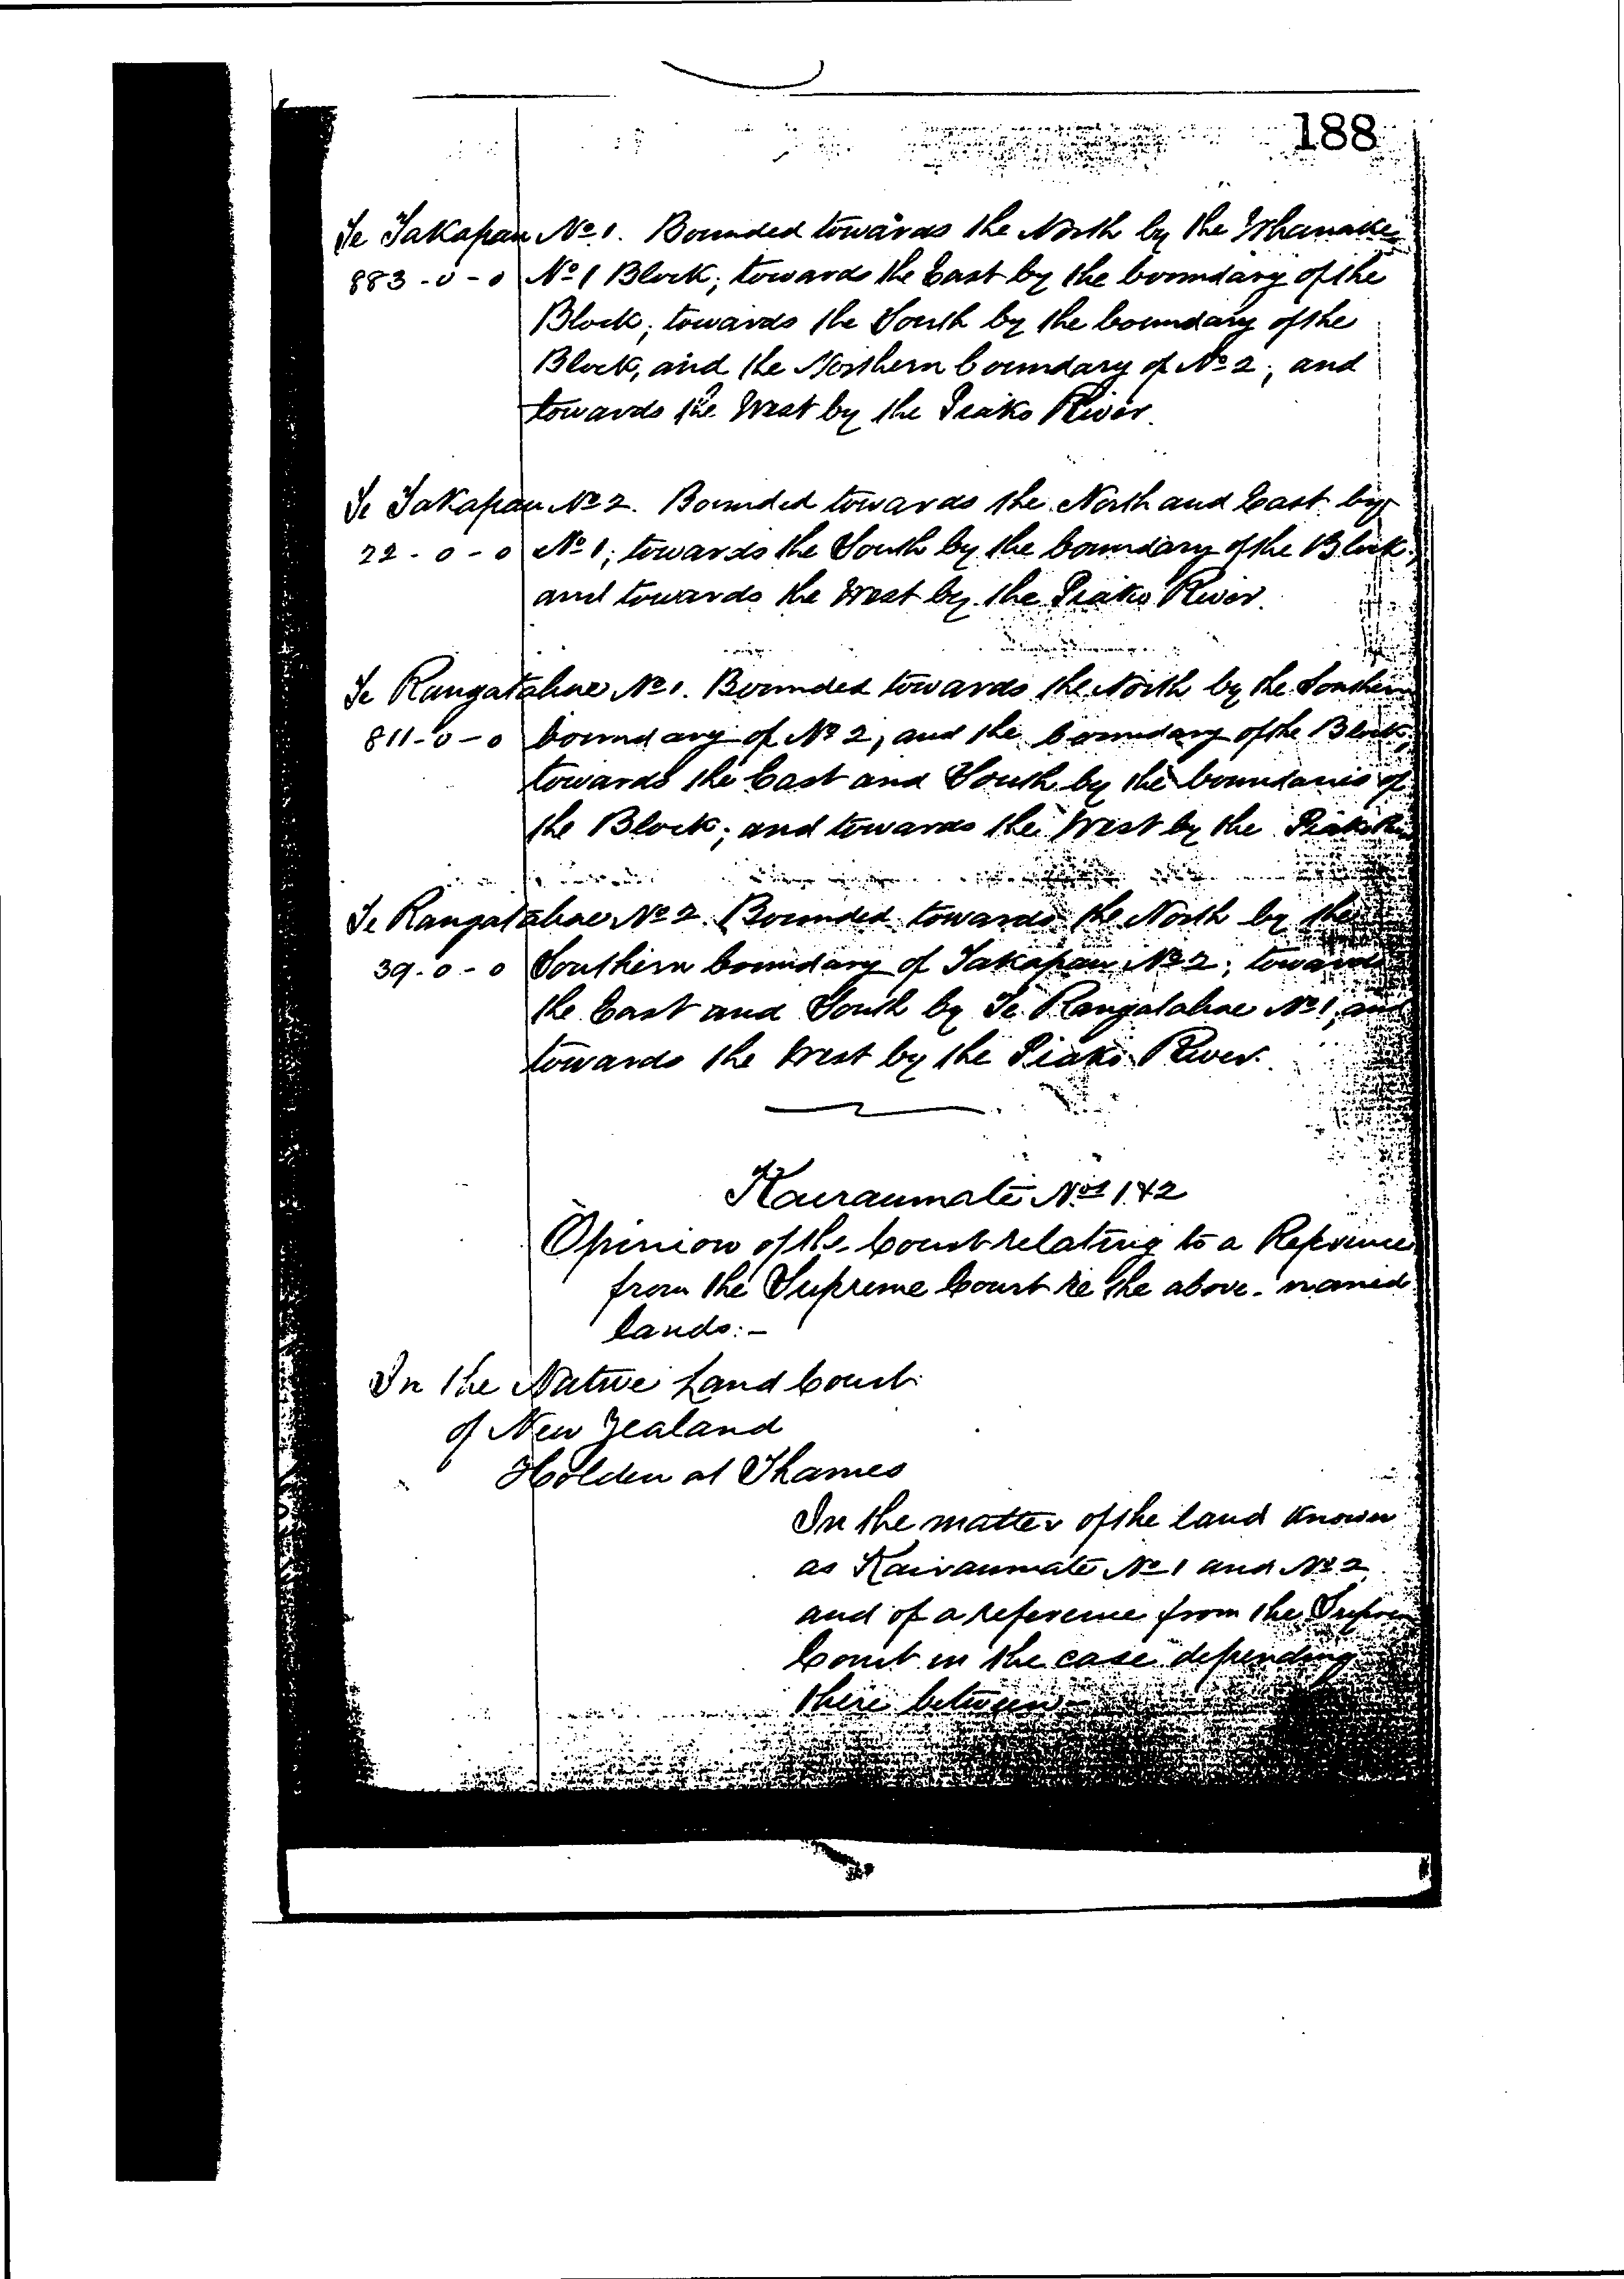 188
Te Takapau No 1. Bounded towards the North by the Whanake
883-0-0 No 1 Block; towards the East by the boundary of the
Block; towards the South by the boundary of the
Block, and the Northern boundary of No 2; and
towards the West by the Piako River.
Te Takapau No 2. Bounded towards the North and East by
22-0-0 No 1; towards the South by the boundary of the Block;
and towards the West by the Piako River.
Te Rangatahae No 1. Bounded towards the North by the Southern
811-0-0 boundary of No 2, and the boundary of the Block;
towards the East and South by the boundaries of
the Block; and towards the West by the Piako
Te Rangatahae No 2. Bounded towards the North by the
39-0-0 Southern boundary of Takapau No 2; towards
the East and South by Te Rangatahae No 1, and
towards the West by the Piako River.
Kairaumati Nos 1 & 2
Opinion of the Court relating to a Reference
from the Supreme Court re the above-named
lands:-
In the Native Land Court
of New Zealand
Holden at Thames
In the matter of the land known
as Kairaumati No 1 and No 2
and of a reference from the Supreme
Court in the case depending
there between-